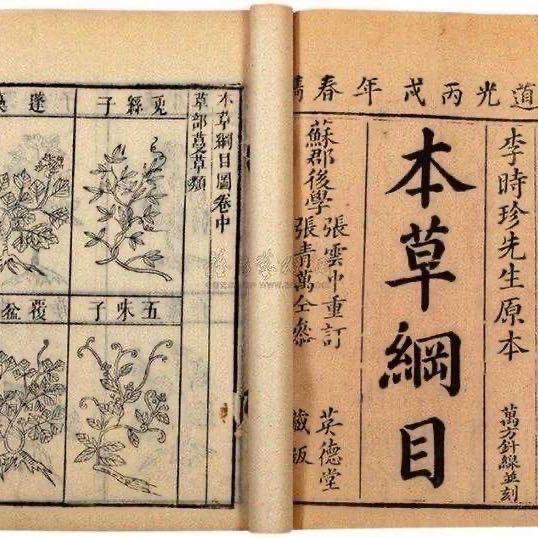 道光丙戌年春鐫
李時珍先生原本
萬方針線並刻
本草綱目
蘇郡後學
張雲中重訂
張青萬仝參
英德堂
藏板
本草綱目圖卷中
草部蔓草類
兎絲子
五味子
蓬
覆盆